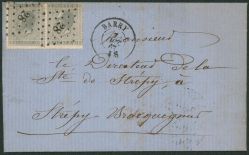 28 28
BARRY
Monsieur
le Directeur de la
Sté de Strépy, à
Strépy-Bracquegnies